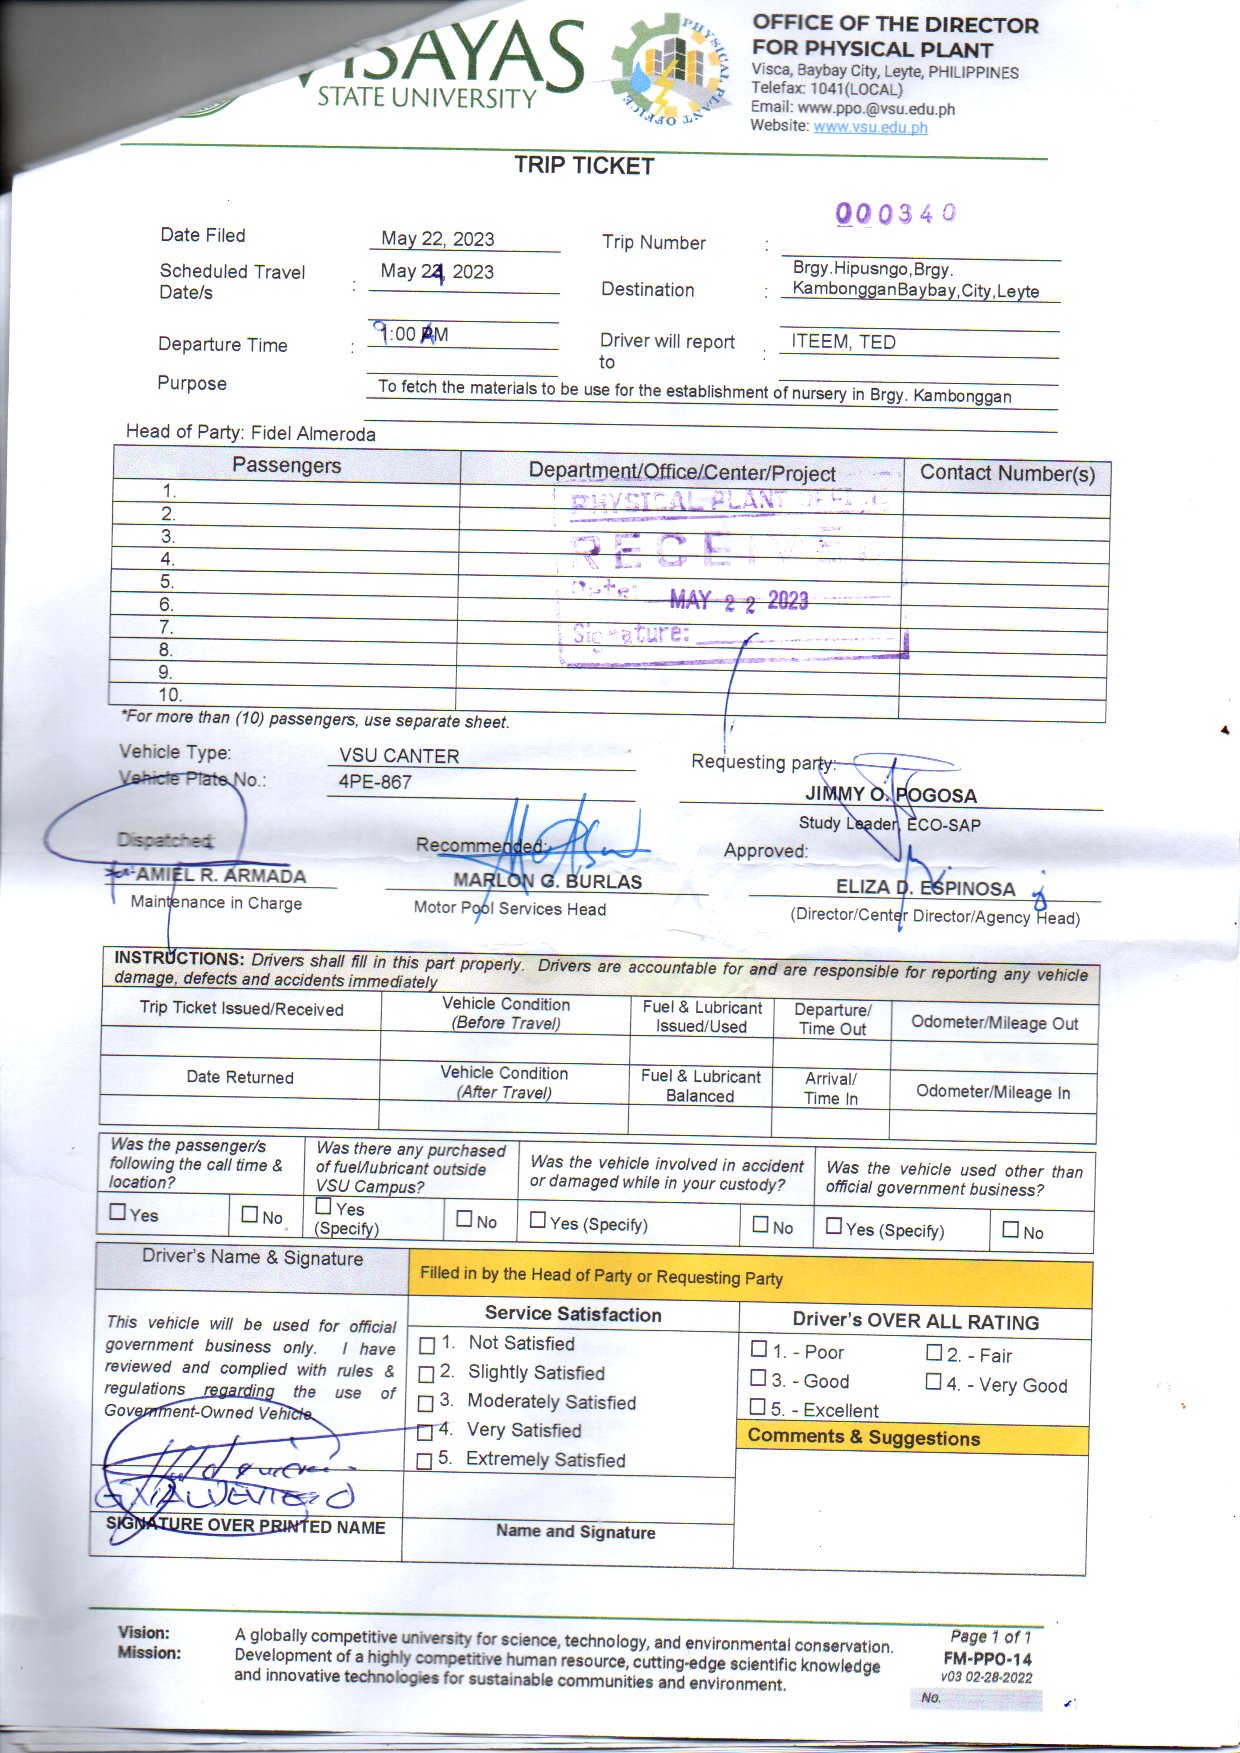 VISAYAS
STATE UNIVERSITY
PHYSICAL PLANT OFFICE
OFFICE OF THE DIRECTOR
FOR PHYSICAL PLANT
Visca, Baybay City, Leyte, PHILIPPINES
Telefax: 1041(LOCAL)
Email: www.ppo.@vsu.edu.ph
Website: www.vsu.edu.ph
TRIP TICKET
000340
Date Filed May 22, 2023 Trip Number :
Scheduled Travel Date/s : May 24, 2023 Destination : Brgy.Hipusngo,Brgy.
KambongganBaybay,City,Leyte
Departure Time : 9:00 AM Driver will report to : ITEEM, TED
Purpose To fetch the materials to be use for the establishment of nursery in Brgy. Kambonggan
Head of Party: Fidel Almeroda
Passengers Department/Office/Center/Project Contact Number(s)
1.
2.
3.
4.
5.
6.
7.
8.
9.
10.
PHYSICAL PLANT OFFICE
RECEIVED
Date: MAY 22 2023
Signature:
*For more than (10) passengers, use separate sheet.
Vehicle Type: VSU CANTER
Vehicle Plate No.: 4PE-867
Requesting party:
JIMMY O. POGOSA
Study Leader, ECO-SAP
Dispatched: Recommended: Approved:
for AMIEL R. ARMADA MARLON G. BURLAS ELIZA D. ESPINOSA
Maintenance in Charge Motor Pool Services Head (Director/Center Director/Agency Head)
INSTRUCTIONS: Drivers shall fill in this part properly. Drivers are accountable for and are responsible for reporting any vehicle
damage, defects and accidents immediately
Trip Ticket Issued/Received Vehicle Condition (Before Travel) Fuel & Lubricant Issued/Used Departure/ Time Out Odometer/Mileage Out
Date Returned Vehicle Condition (After Travel) Fuel & Lubricant Balanced Arrival/ Time In Odometer/Mileage In
Was the passenger/s following the call time & location?
Was there any purchased of fuel/lubricant outside VSU Campus?
Was the vehicle involved in accident or damaged while in your custody?
Was the vehicle used other than official government business?
Yes No Yes (Specify) No Yes (Specify) No Yes (Specify) No
Driver's Name & Signature
Filled in by the Head of Party or Requesting Party
This vehicle will be used for official
government business only. I have
reviewed and complied with rules &
regulations regarding the use of
Government-Owned Vehicle.
SIGNATURE OVER PRINTED NAME
Service Satisfaction
1. Not Satisfied
2. Slightly Satisfied
3. Moderately Satisfied
4. Very Satisfied
5. Extremely Satisfied
Name and Signature
Driver's OVER ALL RATING
1. - Poor 2. - Fair
3. - Good 4. - Very Good
5. - Excellent
Comments & Suggestions
Vision: A globally competitive university for science, technology, and environmental conservation.
Mission: Development of a highly competitive human resource, cutting-edge scientific knowledge
and innovative technologies for sustainable communities and environment.
Page 1 of 1
FM-PPO-14
v03 02-28-2022
No.